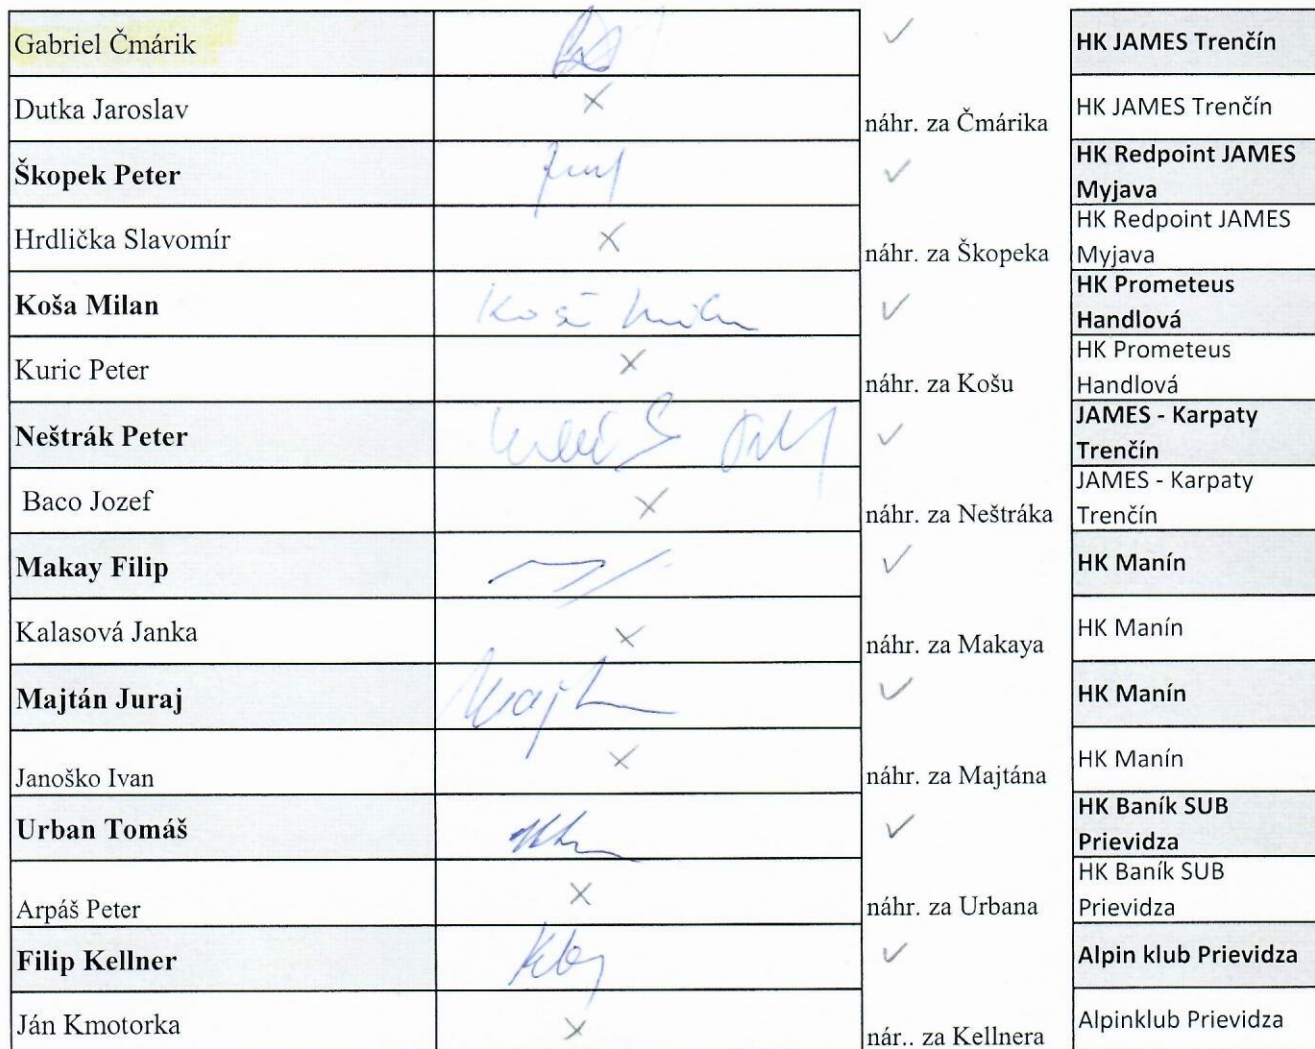 Gabriel Čmárik ✓ HK JAMES Trenčín
Dutka Jaroslav × náhr. za Čmárika HK JAMES Trenčín
Škopek Peter ✓ HK Redpoint JAMES
Myjava
Hrdlička Slavomír × náhr. za Škopeka HK Redpoint JAMES
Myjava
Koša Milan Koša Milan ✓ HK Prometeus
Handlová
Kuric Peter × náhr. za Košu HK Prometeus
Handlová
Neštrák Peter ✓ JAMES - Karpaty
Trenčín
Baco Jozef × náhr. za Neštráka JAMES - Karpaty
Trenčín
Makay Filip ✓ HK Manín
Kalasová Janka × náhr. za Makaya HK Manín
Majtán Juraj ✓ HK Manín
Janoško Ivan × náhr. za Majtána HK Manín
Urban Tomáš ✓ HK Baník SUB
Prievidza
Arpáš Peter × náhr. za Urbana HK Baník SUB
Prievidza
Filip Kellner ✓ Alpin klub Prievidza
Ján Kmotorka × nár.. za Kellnera Alpinklub Prievidza